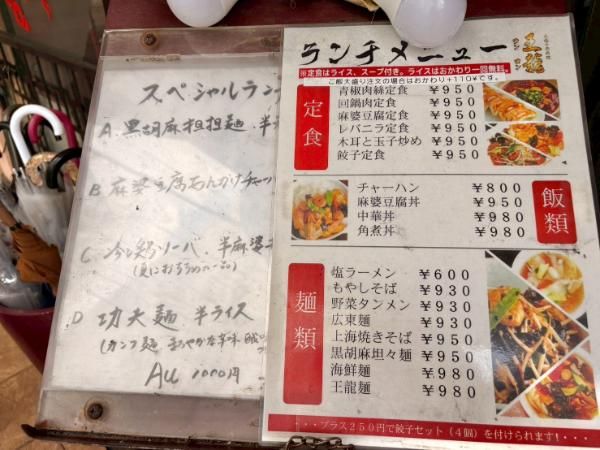 スペシャルラン
A. 黒胡麻担担麺、半
B. 麻婆豆腐あんかけチャー
C 冷し 半麻婆
D 功夫麺 半ライス
(カンフー麺 まろやかな辛味
Au 1000円
ランチメニュー
王龍
ワンロン
※定食はライス、スープ付き。ライスはおかわり一回無料。
ご飯大盛り注文の場合はおかわり+110¥です。
定食
青椒肉絲定食 ￥950
回鍋肉定食 ￥950
麻婆豆腐定食 ￥950
レバニラ定食 ￥950
木耳と玉子炒め ￥950
餃子定食 ￥950
飯類
チャーハン ￥800
麻婆豆腐丼 ￥950
中華丼 ￥980
角煮丼 ￥980
麺類
塩ラーメン ￥600
もやしそば ￥930
野菜タンメン ￥930
広東麺 ￥930
上海焼きそば ￥950
黒胡麻坦々麺 ￥950
海鮮麺 ￥980
王龍麺 ￥980
・・・プラス250円で餃子セット（4個）を付けられます!・・・